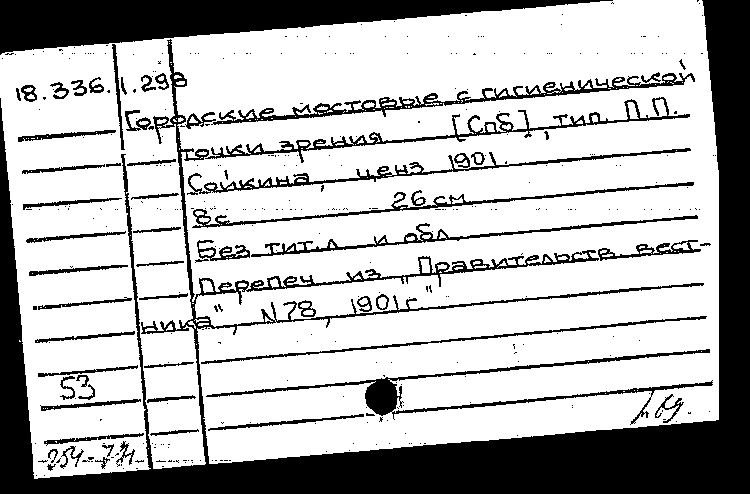 18.336.1.298
Городские мостовые с гигиенической
точки зрения [Спб], тип. П.П.
Сойкина, ценз 1901.
8с 26 см
Без тит.л и обл
Перепеч из „Правительств. вест-
ника", N 78, 1901г"
53